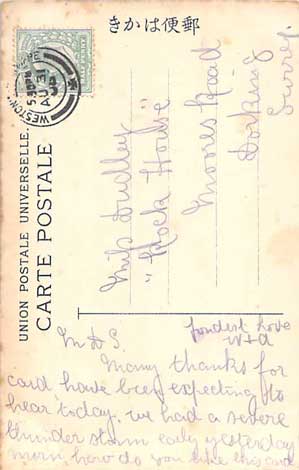 郵便はかき
UNION POSTALE UNIVERSELLE.
CARTE POSTALE
WESTON
AU 3
Miss Dudley
"Rock House"
Moores Road
Dorking
Surrey
fondest love
M D G.
Many thanks for
card have been expecting to
hear today. we had a severe
thunder storm early yesterday
morn, how do you like this card